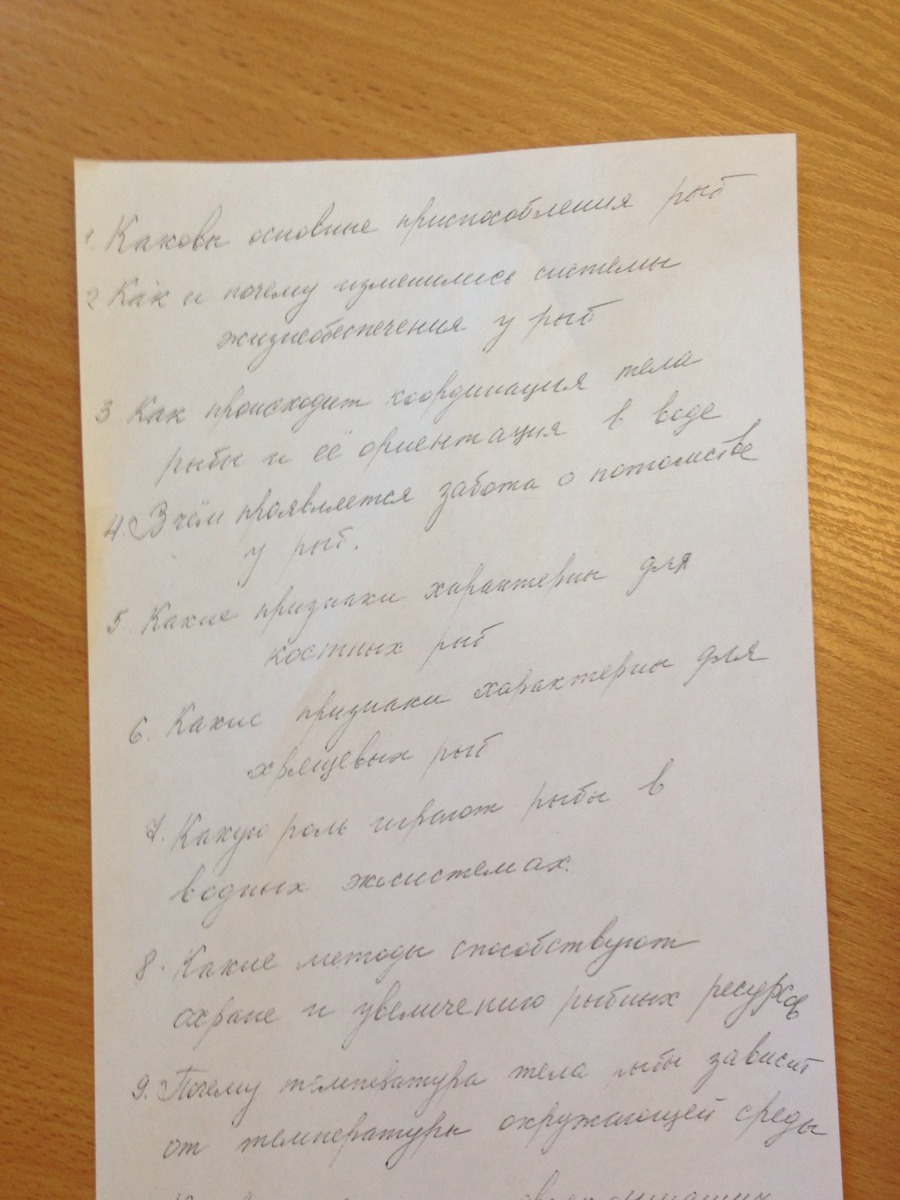 1. Каковы основные приспособления рыб
2 Как и почему изменились системы
жизнеобеспечения у рыб
3 Как происходит координация тела
рыбы и её ориентация в воде
4. В чём проявляется забота о потомстве
у рыб.
5. Какие признаки характерны для
костных рыб
6. Какие признаки характерны для
хрящевых рыб
7. Какую роль играют рыбы в
водных экосистемах.
8. Какие методы способствуют
охране и увеличению рыбных ресурсов
9. Почему температура тела рыбы зависит
от температуры окружающей среды